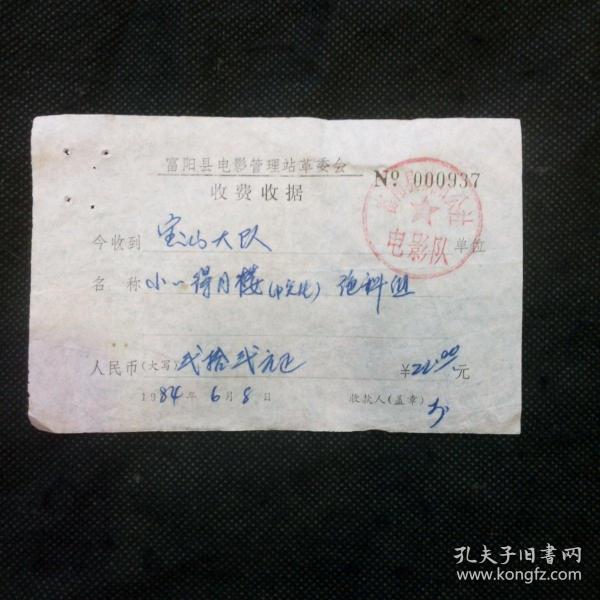 富阳县电影管理站革委会
收费收据
№ 000937
今收到 宝山大队 单位
电影队
名称 小小得月楼
人民币(大写) 弍拾弍元正 ¥22.00元
1984年6月8日 收款人(盖章)
孔夫子旧书网
www.kongfz.com